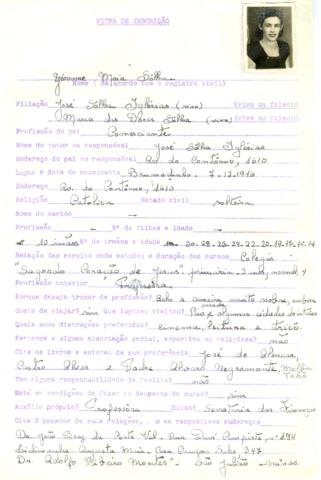 FICHA DE INSCRIÇÃO
Maia Sálha
Nome ( de acordo com o registro civil)
Filiação José Sálha Iglésias (vivo) (vivo ou falecido
Maria das Dôres Sálha (viva) (vivo ou falecido
Profissão do pai Comerciante
Nome do tutor ou responsável José Sálha Iglésias
Endereço do pai ou responsável Av. do Contôrno, 1610
Lugar e data de nascimento Brumadinho - 7-12-1940
Endereço Av. do Contôrno, 1610
Religião Católica Estado civil solteira
Nome do marido —
Profissão — Nº de filhos e idade —
10 irmãos Nº de irmãos e idade 30-28-25-24-22-20-19-17-15-14
Relação das escolas onde estudou e duração dos cursos Colégio
"Sagrado Coração de Jesus: primário - 3 anos, normal, 4
Profissão anterior Professôra
Porque deseja trocar de profissão? Acho a carreira muito nobre,
Gosta de viajar? sim Que lugares visitou? Rio, e algumas cidades
Quais suas distrações preferidas? cinema, leitura e tricô
Pertence a alguma associação social, esportiva ou religiosa? não
Cite os livros e autores de sua preferência José de Alencar,
Castro Alves e Padre Álvaro Negromonte,
Tem alguma responsabilidade de família? não
Está em condições de fazer as despesas do curso? sim
Auxílio próprio? Professôra Bolsa? Secretaria das Finanças
Cite 3 pessoas de suas relações, e os respectivos endereços
Dr. João da Costa Val - Rua
Augusta Maia - Rua Campos Sales 347
Dr. Adolfo Ribeiro Montes - São Julião - Minas.